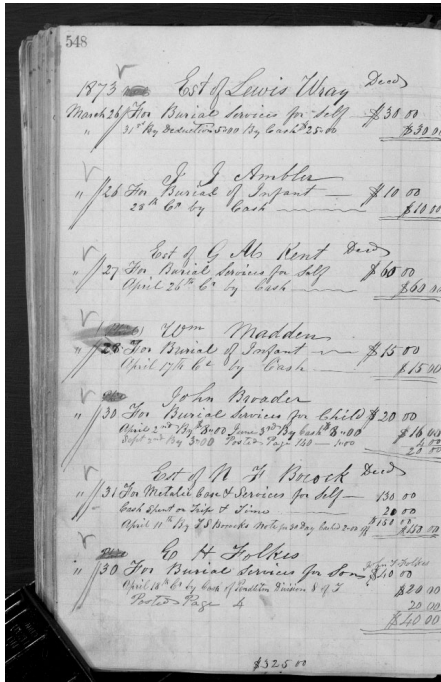 548
1873 Est of Lewis Wray Decd
March 26 For Burial Services for Self $30 00
" 31st By Deduction 5.00 By Cash $25.00 $30 00
J J Ambler
" 26 For Burial of Infant $10 00
28th Cr by Cash $10 00
Est of G M Kent Decd
" 27 For Burial Services for Self $60 00
April 26th Cr by Cash $60 00
Wm Madden
" 28 For Burial of Infant $15 00
April 17th Cr by Cash $15 00
John Broader
" 30 For Burial Services for Child $20 00
April 2nd By $8.00 June 3rd By Cash $8.00 $16 00
Sept 2nd By 3.00 Posted Page 160 1.00 4 00
20 00
Est of N F Bocock Decd
" 31 For Metalic Case & Services for Self 130 00
Cash Spent on Trip & Time 20 00
$150 00
April 11th By T S Bocock's Note for 30 Day $150 00
E H Folkes
" 30 For Burial Services for Son John T Folkes $40 00
April 18th Cr by Cash of Division S of T $20 00
Posted Page 4 20 00
$40 00
$325 00